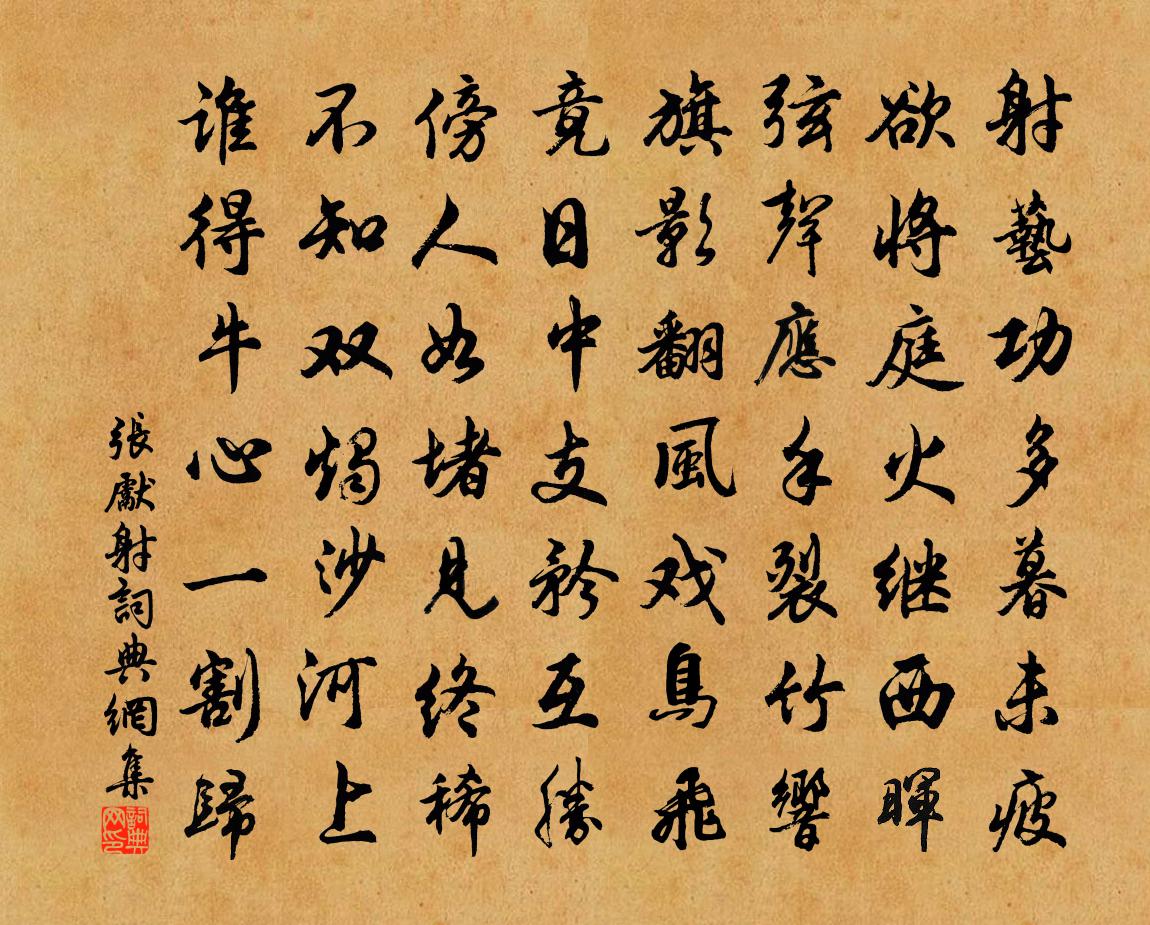 射藝功多暮未疲
欲将庭火继西暉
弦聲應手裂竹響
旗影翻風戏鳥飛
竟日中支矜互勝
傍人如堵見終稀
不知双燭沙河上
谁得牛心一割歸
張獻射詞典網集
詞典网印